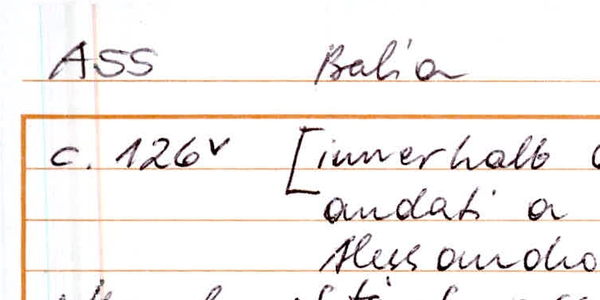 ASS Balia
c. 126v [innerhalb
andati a
Alessandro